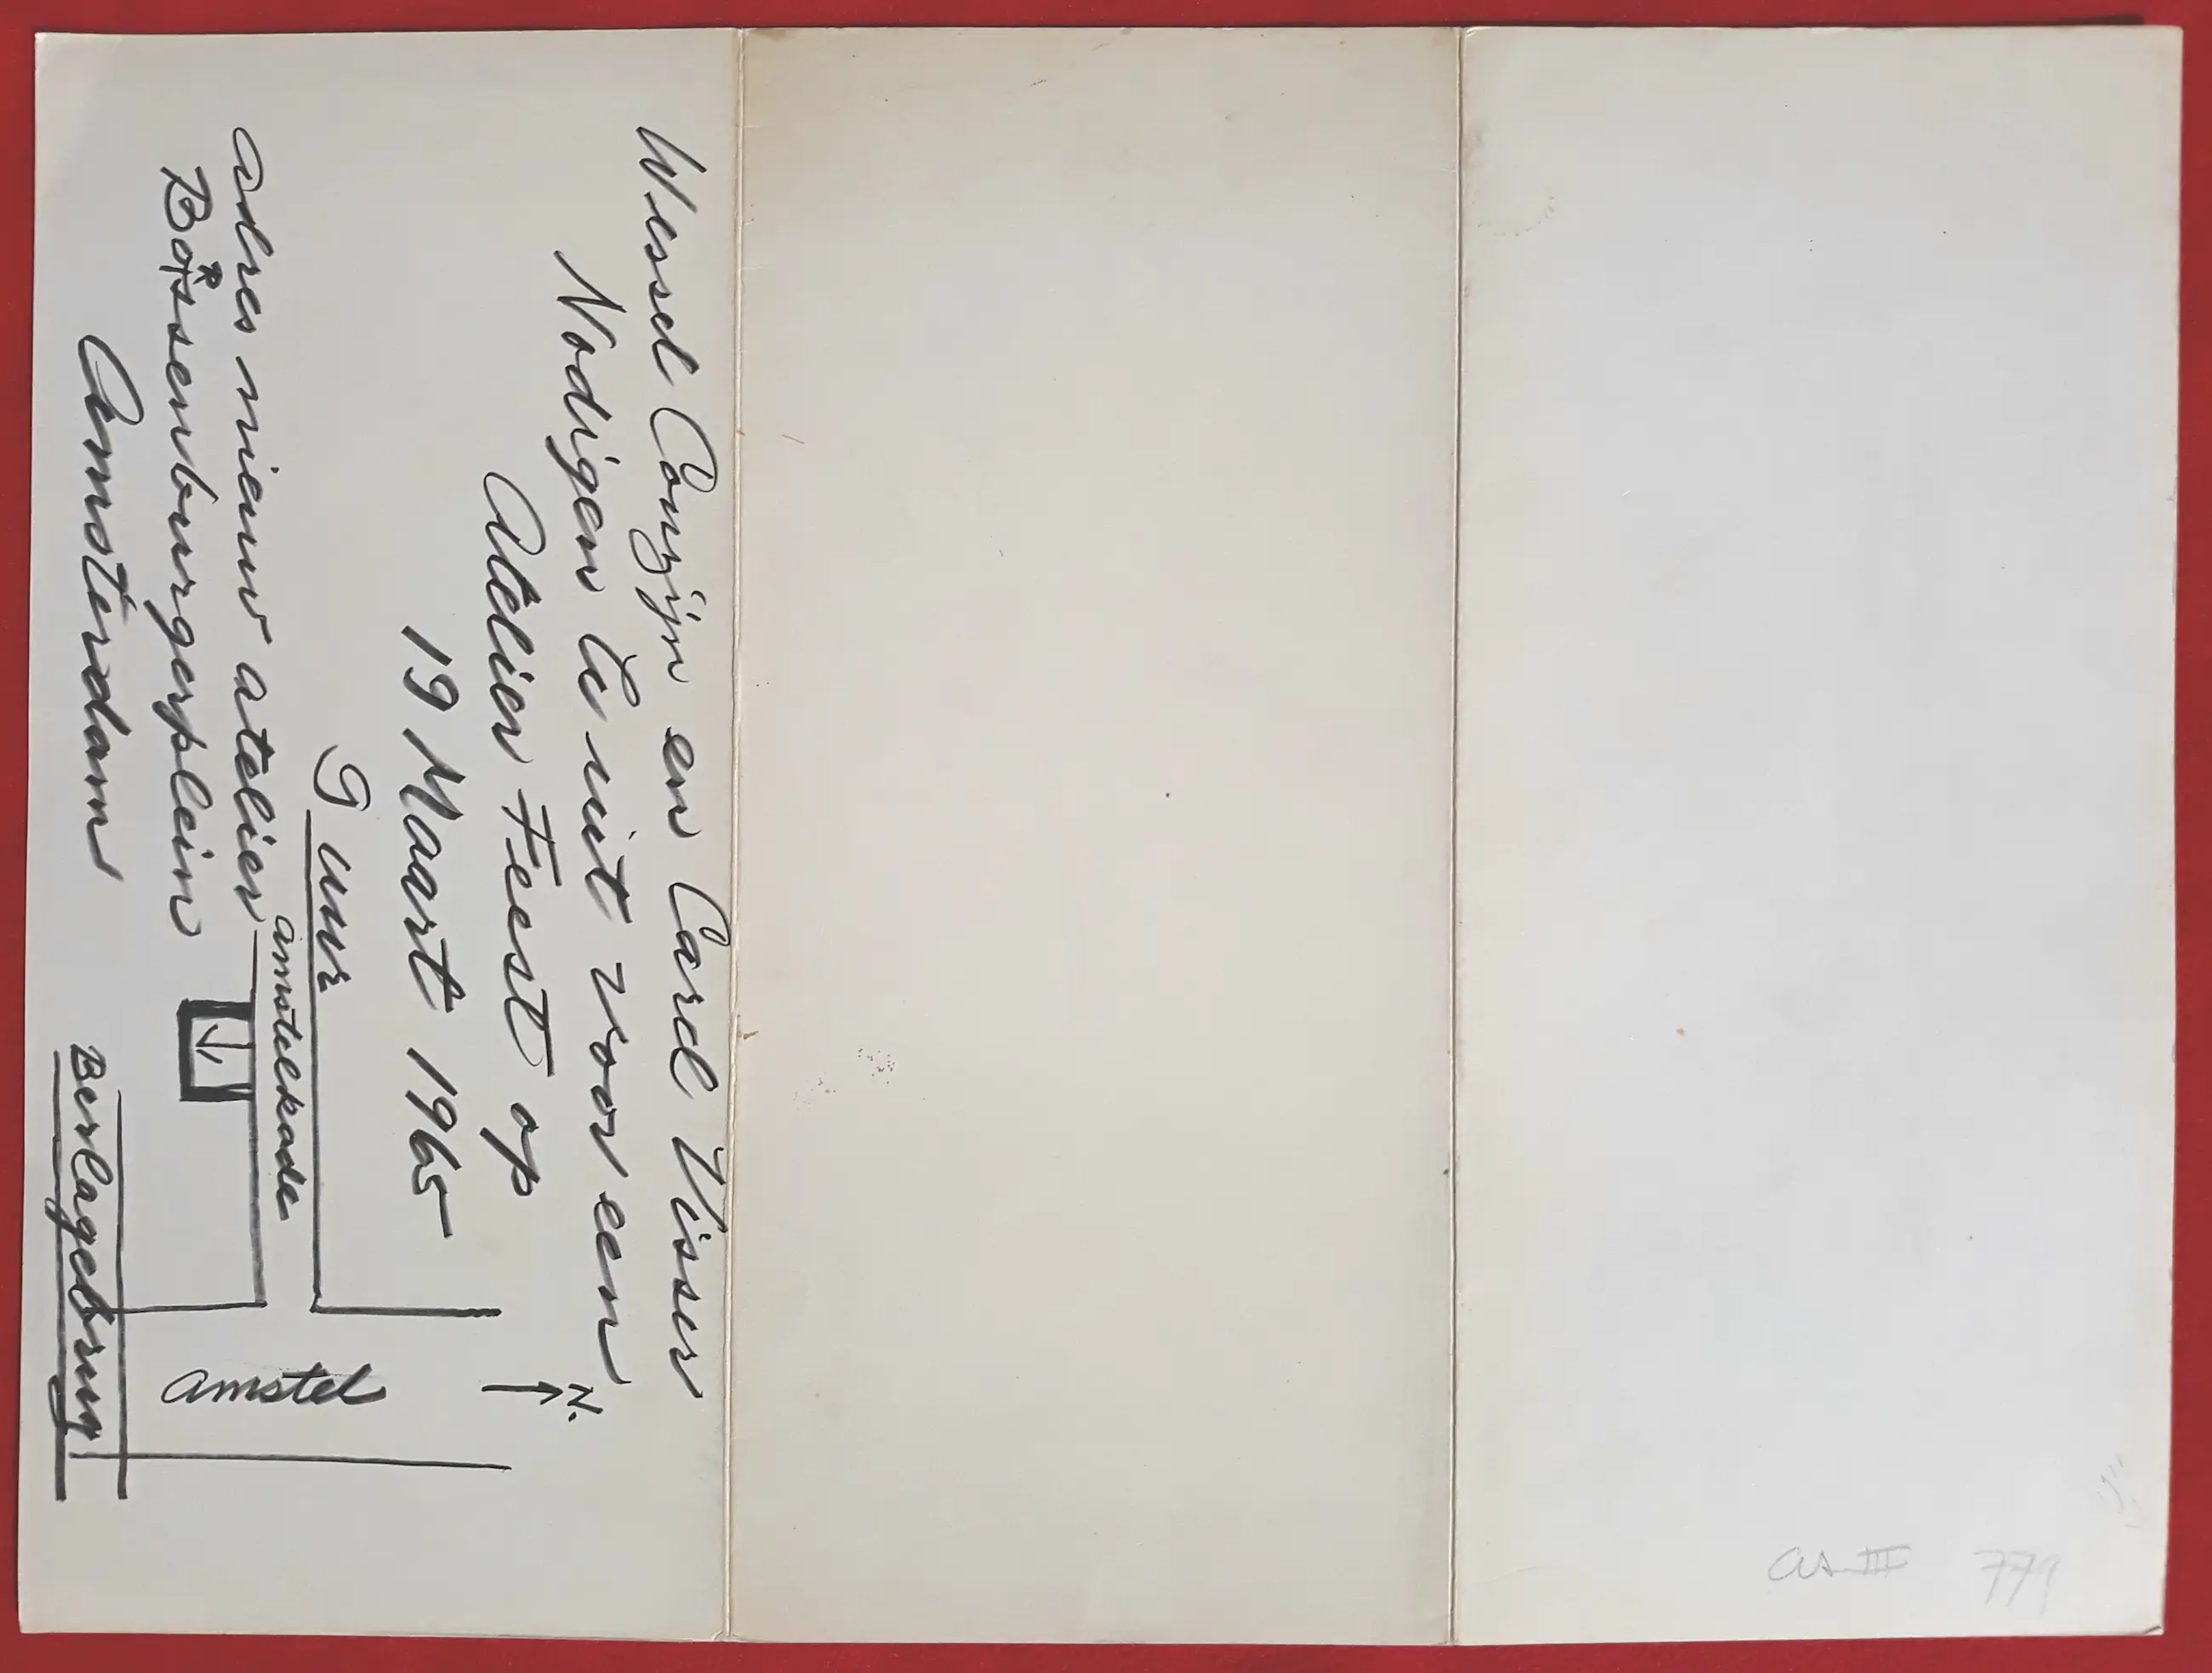 Wessel Couzijn en Carel Visser
Nodigen U uit voor een
Atelier Feest op
19 Maart 1965
9 uur
adres nieuw atelier
Borssenburgerplein
Amsterdam
amstelkade
Berlagebrug
amstel
N.
779